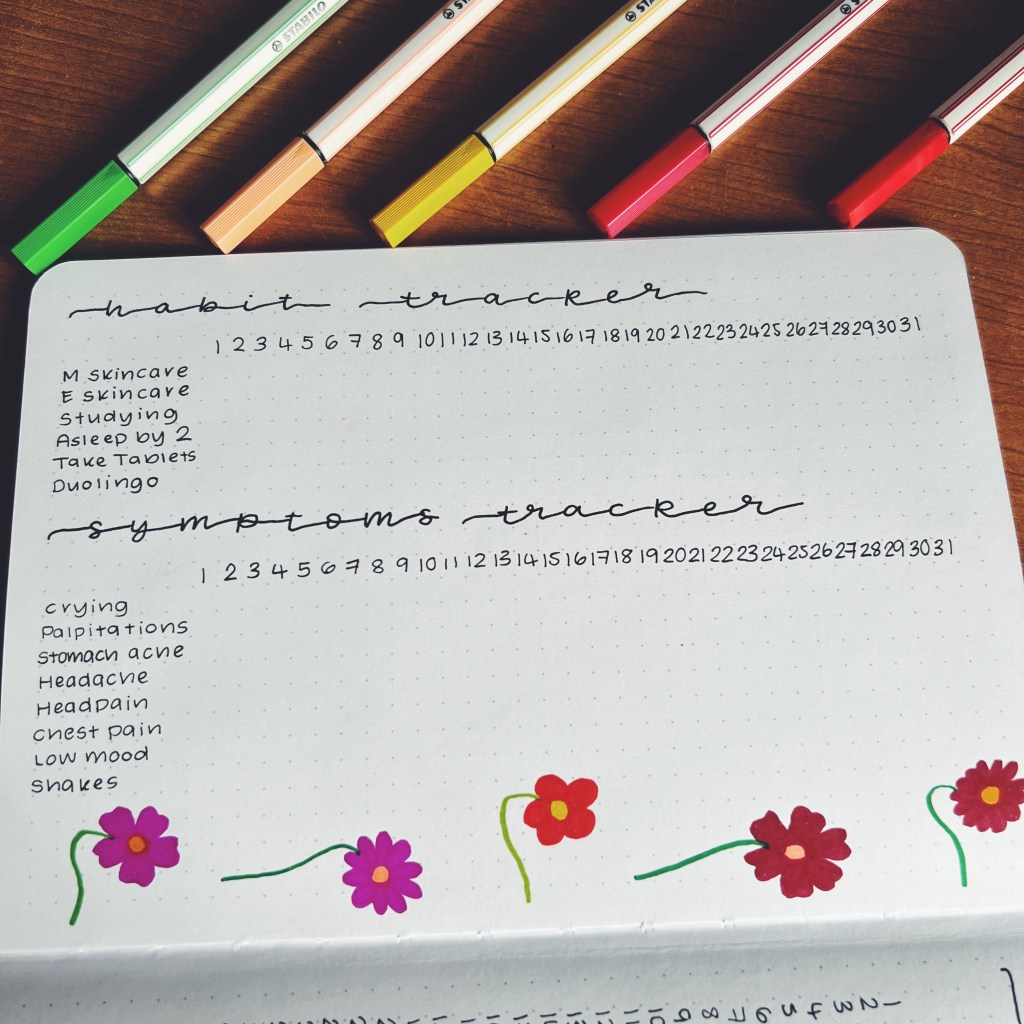 STABILO
STA
STA
habit tracker
1 2 3 4 5 6 7 8 9 10 11 12 13 14 15 16 17 18 19 20 21 22 23 24 25 26 27 28 29 30 31
M skincare
E skincare
Studying
Asleep by 2
Take Tablets
Duolingo
symptoms tracker
1 2 3 4 5 6 7 8 9 10 11 12 13 14 15 16 17 18 19 20 21 22 23 24 25 26 27 28 29 30 31
crying
Palpitations
Stomach ache
Headache
Headpain
chest pain
Low mood
Shakes